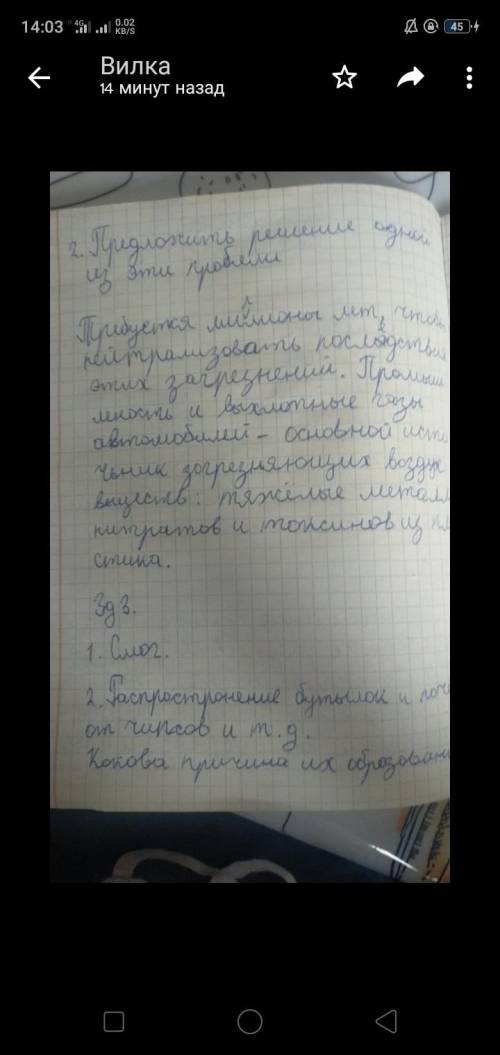 14:03 4G 0.02 KB/S 45
Вилка
14 минут назад
2. Предложить решение одной
из эти проблем
Требуется миллионы лет, чтоб
нейтрализовать последствия
этих загрезнений. Промыш
леность и выхлопные газы
автомобилей - основной исто
чьник загрезняющих воздух
вществ: тяжёлые метал
нитратов и токсинов из пл
стика.
Зд3.
1. Смог.
2. Распростронение бутылок и
от чипсов и т.д.
Какова причина их образован